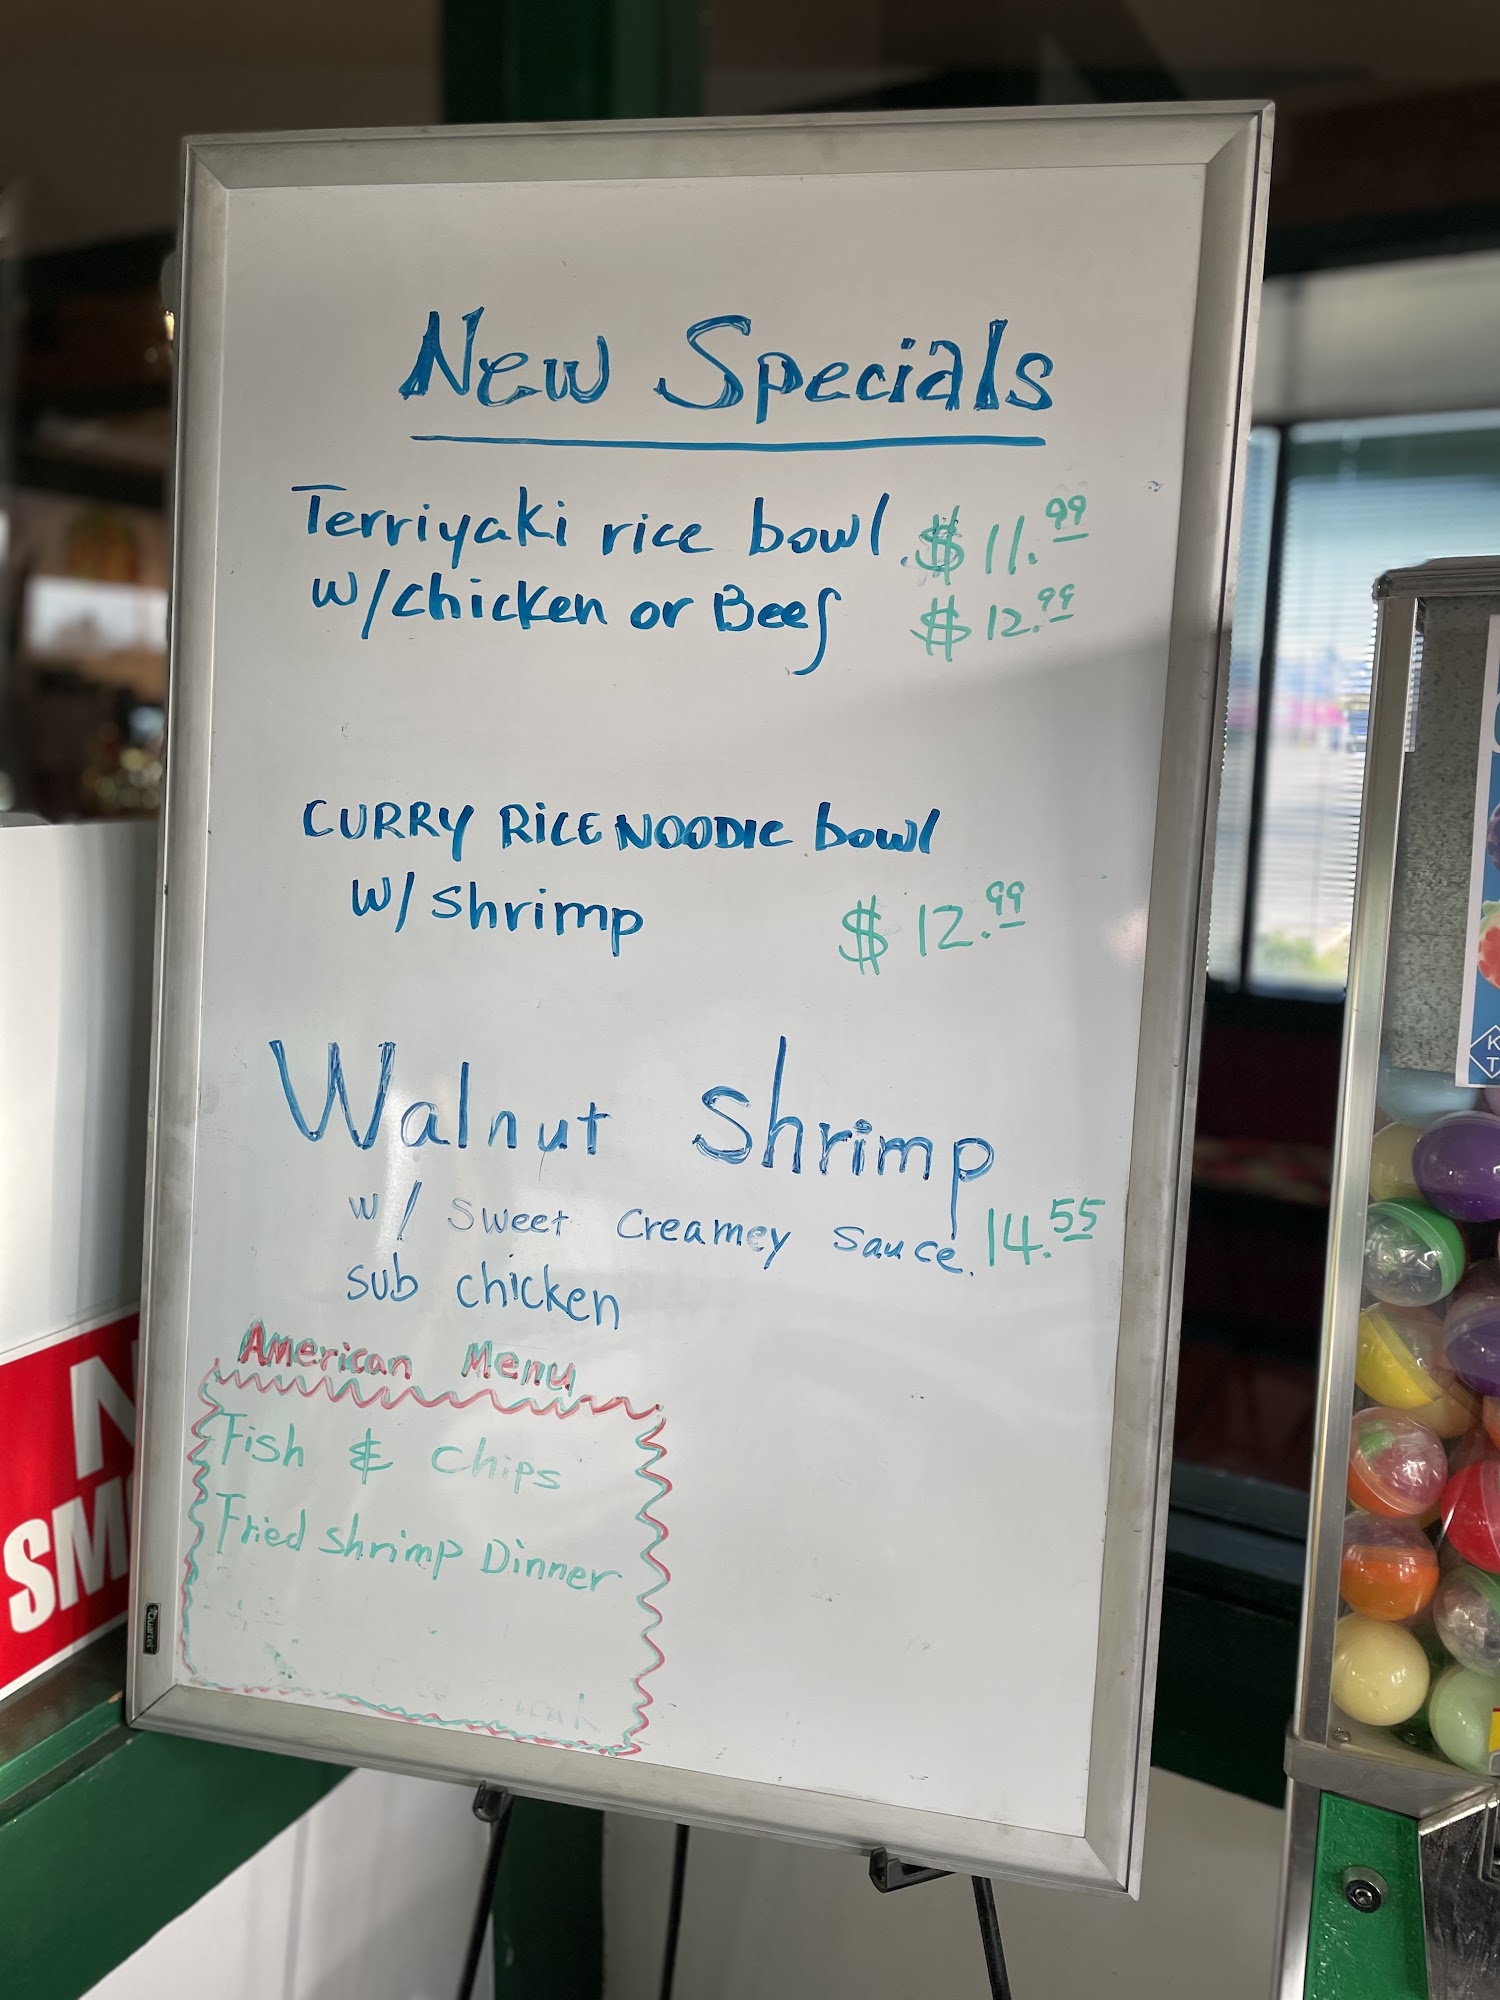 New Specials
Terriyaki rice bowl. $11.99
w/chicken or Beef $12.99
CURRY RICE NOODLE bowl
w/ shrimp $12.99
Walnut Shrimp
w/ sweet creamey sauce. 14.55
sub chicken
American Menu
Fish & chips
Fried shrimp Dinner
Quartet
N
SM
K
T